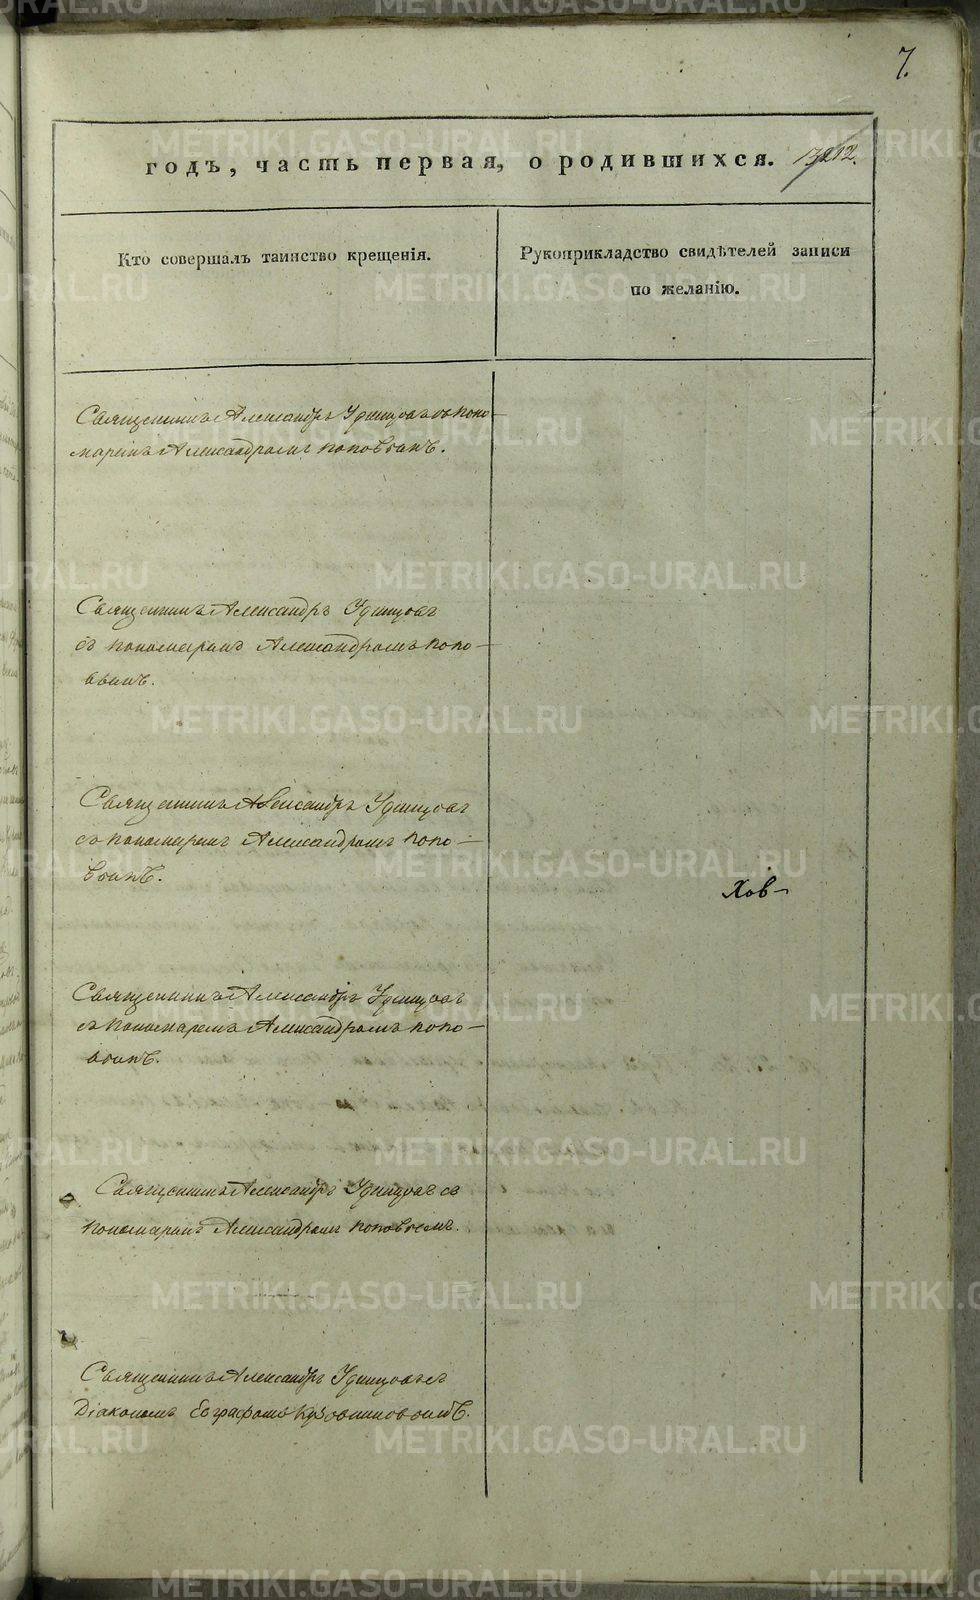 7.
годъ, часть первая, о родившихся.
Кто совершалъ таинство крещенія.
Рукоприкладство свидѣтелей записи
по желанію.
Священникъ Александръ Удинцовъ съ поно-
маремъ Александромъ Поповымъ.
Священникъ Александръ Удинцовъ
съ пономаремъ Александромъ Попо-
вымъ.
Священникъ Александръ Удинцовъ
съ пономаремъ Александромъ Попо-
вымъ.
Хов-
Священникъ Александръ Удинцовъ
съ пономаремъ Александромъ Попо-
вымъ.
Священникъ Александръ Удинцовъ съ
пономаремъ Александромъ Поповымъ.
Священникъ Александръ Удинцовъ съ
Діакономъ Евграфомъ Кузовниковымъ.
METRIKI.GASO-URAL.RU